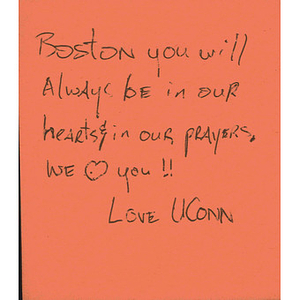 Boston you will
Always be in our
hearts & in our prayers.
We ♡ you !!
Love UConn